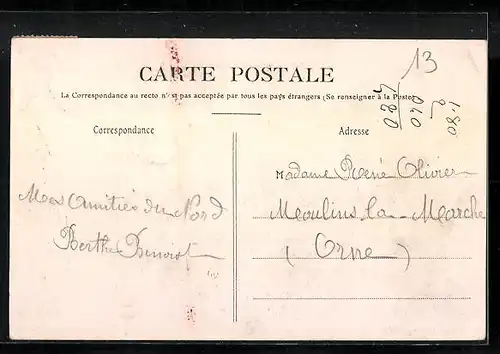 13
CARTE POSTALE
La Correspondance au recto n'est pas acceptée par tous les pays étrangers (Se renseigner à la Poste)
Correspondance
Adresse
Madame René Olivier
Moulins la Marche
(Orne)
Mes Amitiés du Nord
Berthe Benoist
080
040
08.1